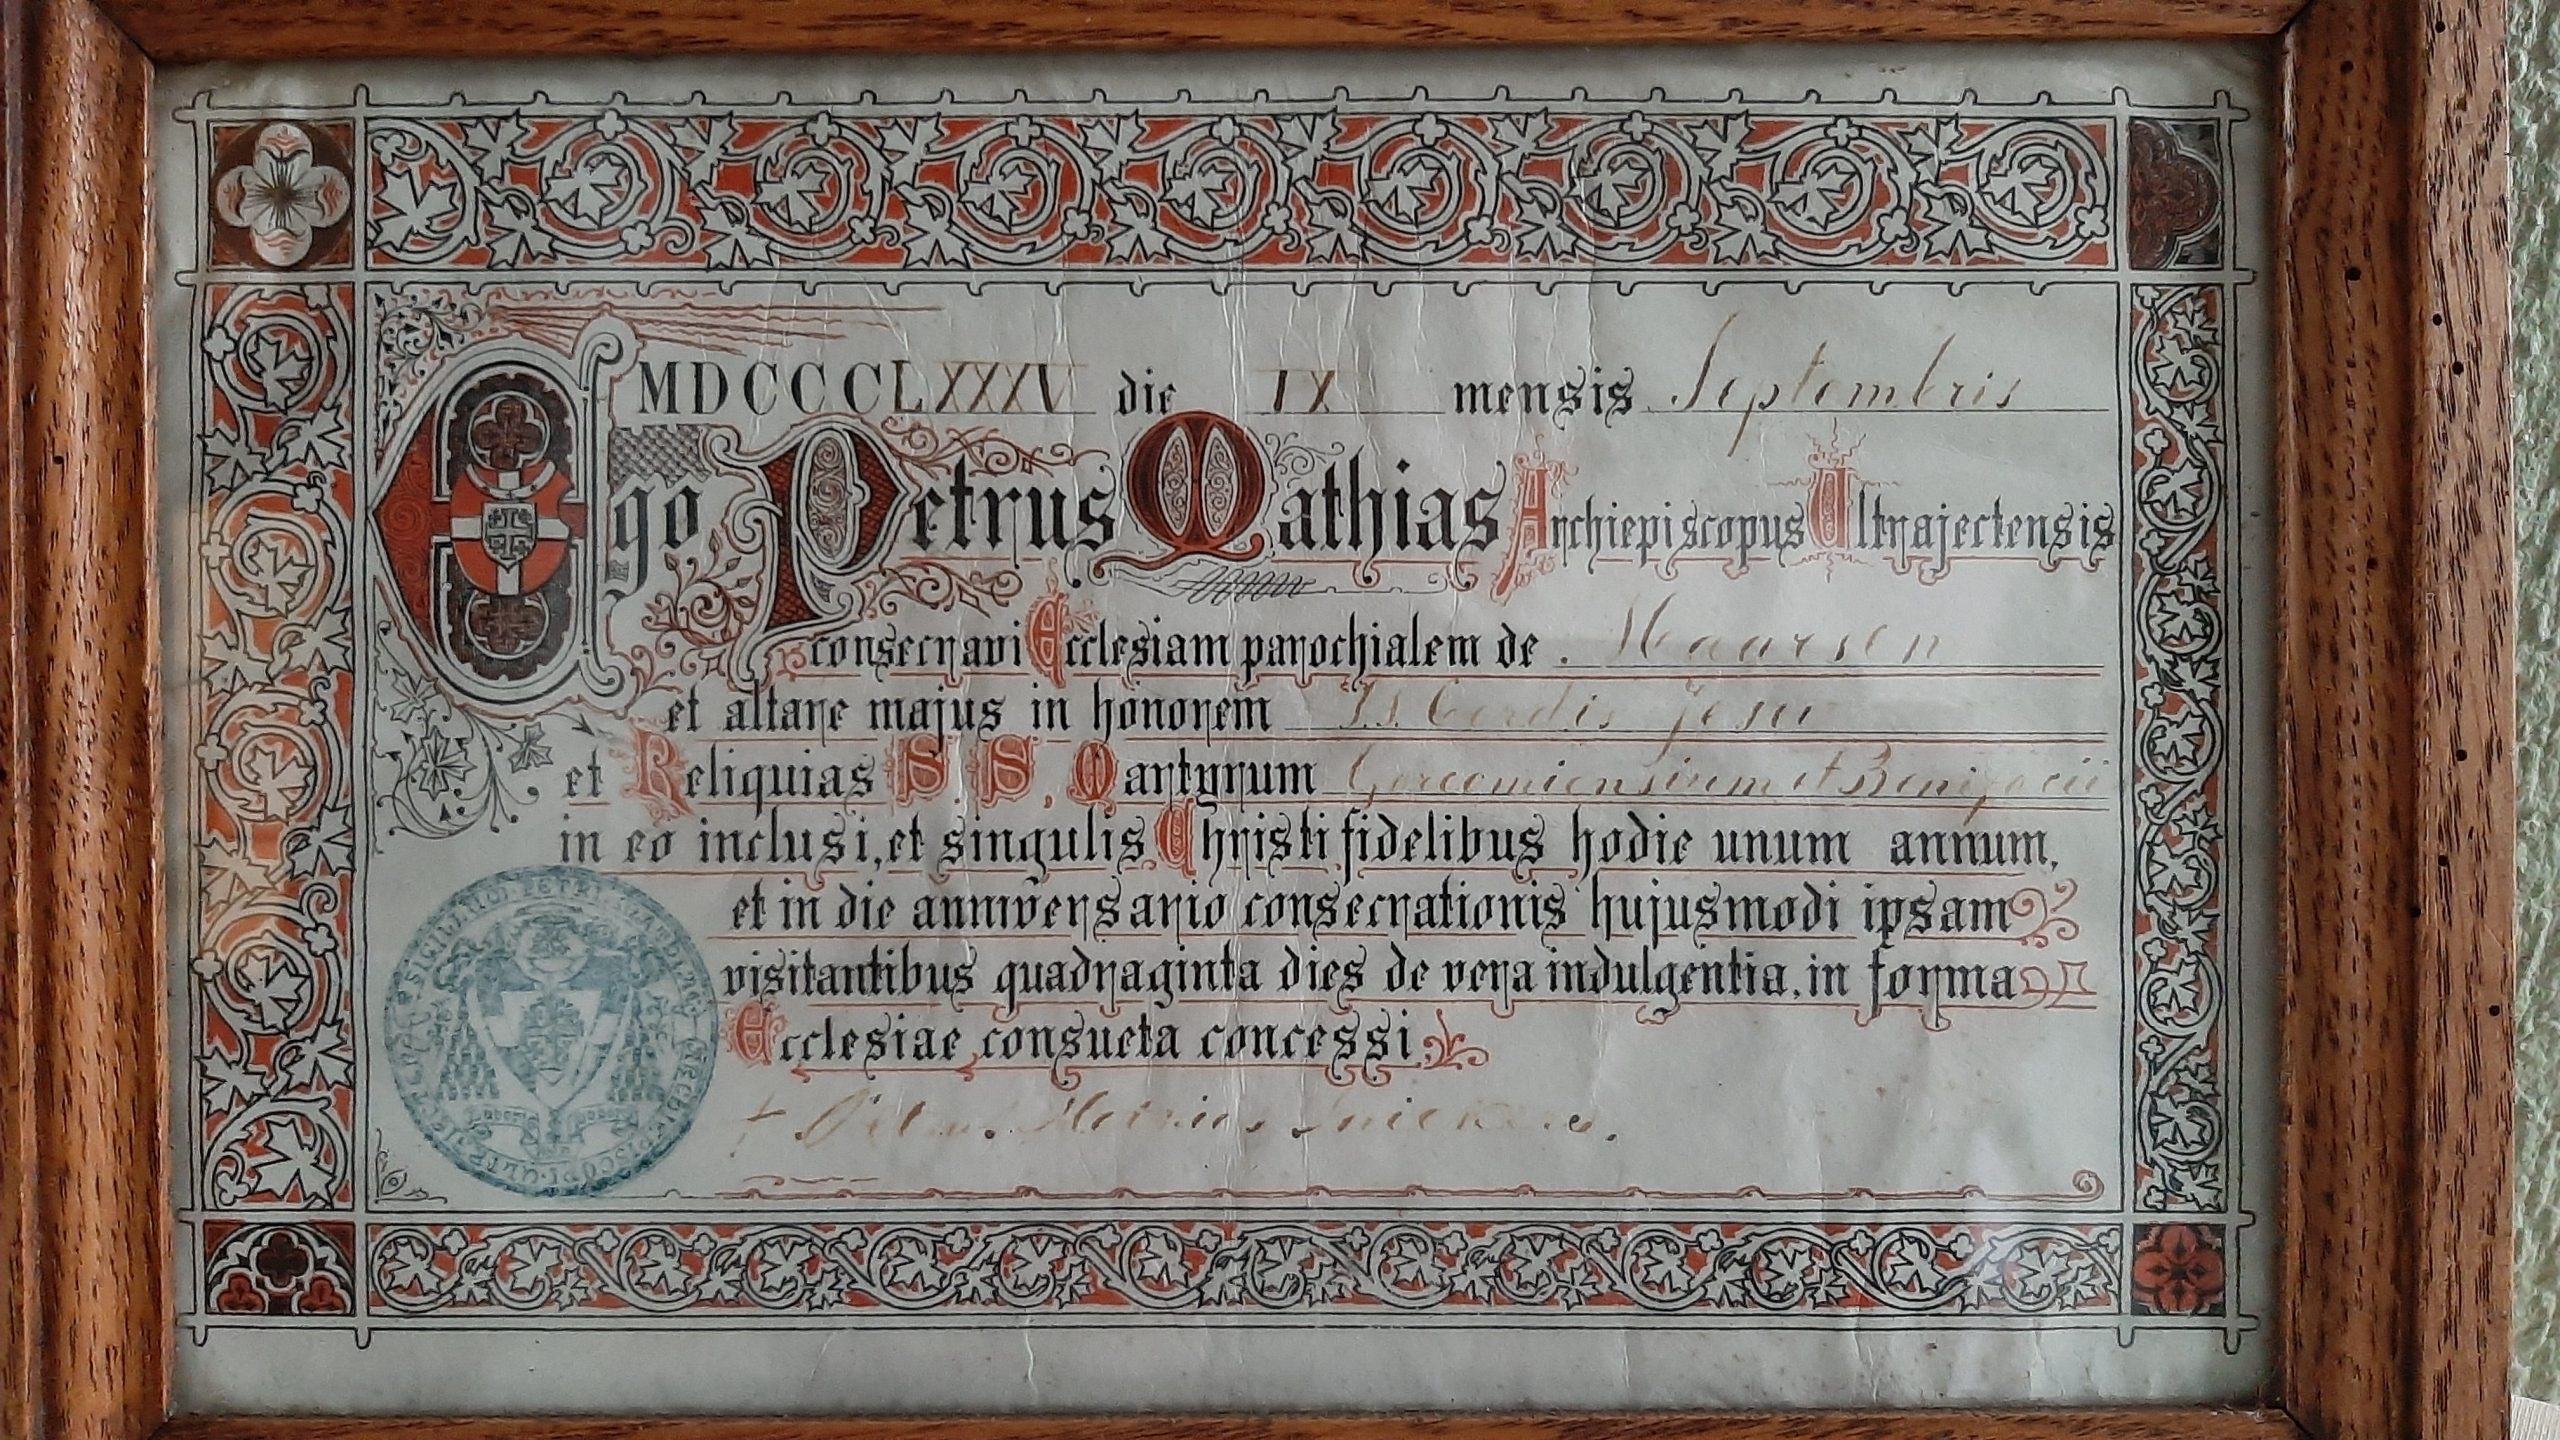 MDCCCCLXXXV die IX mensis Septembris
Ego Petrus Mathias Archiepiscopus Ultrajectensis
consecravi Ecclesiam parochialem de Maarsen
et altare majus in honorem SS. Cordis Jesu
et Reliquias S.S. Martyrum Gorcomiensium et Bonifacii
in eo inclusi, et singulis Christi fidelibus hodie unum annum,
et in die anniversario consecrationis hujusmodi ipsam
visitantibus quadraginta dies de vera indulgentia, in forma
Ecclesiae consueta concessi.
† Petrus Mathias Snickers.
SIGILLUM PETRI